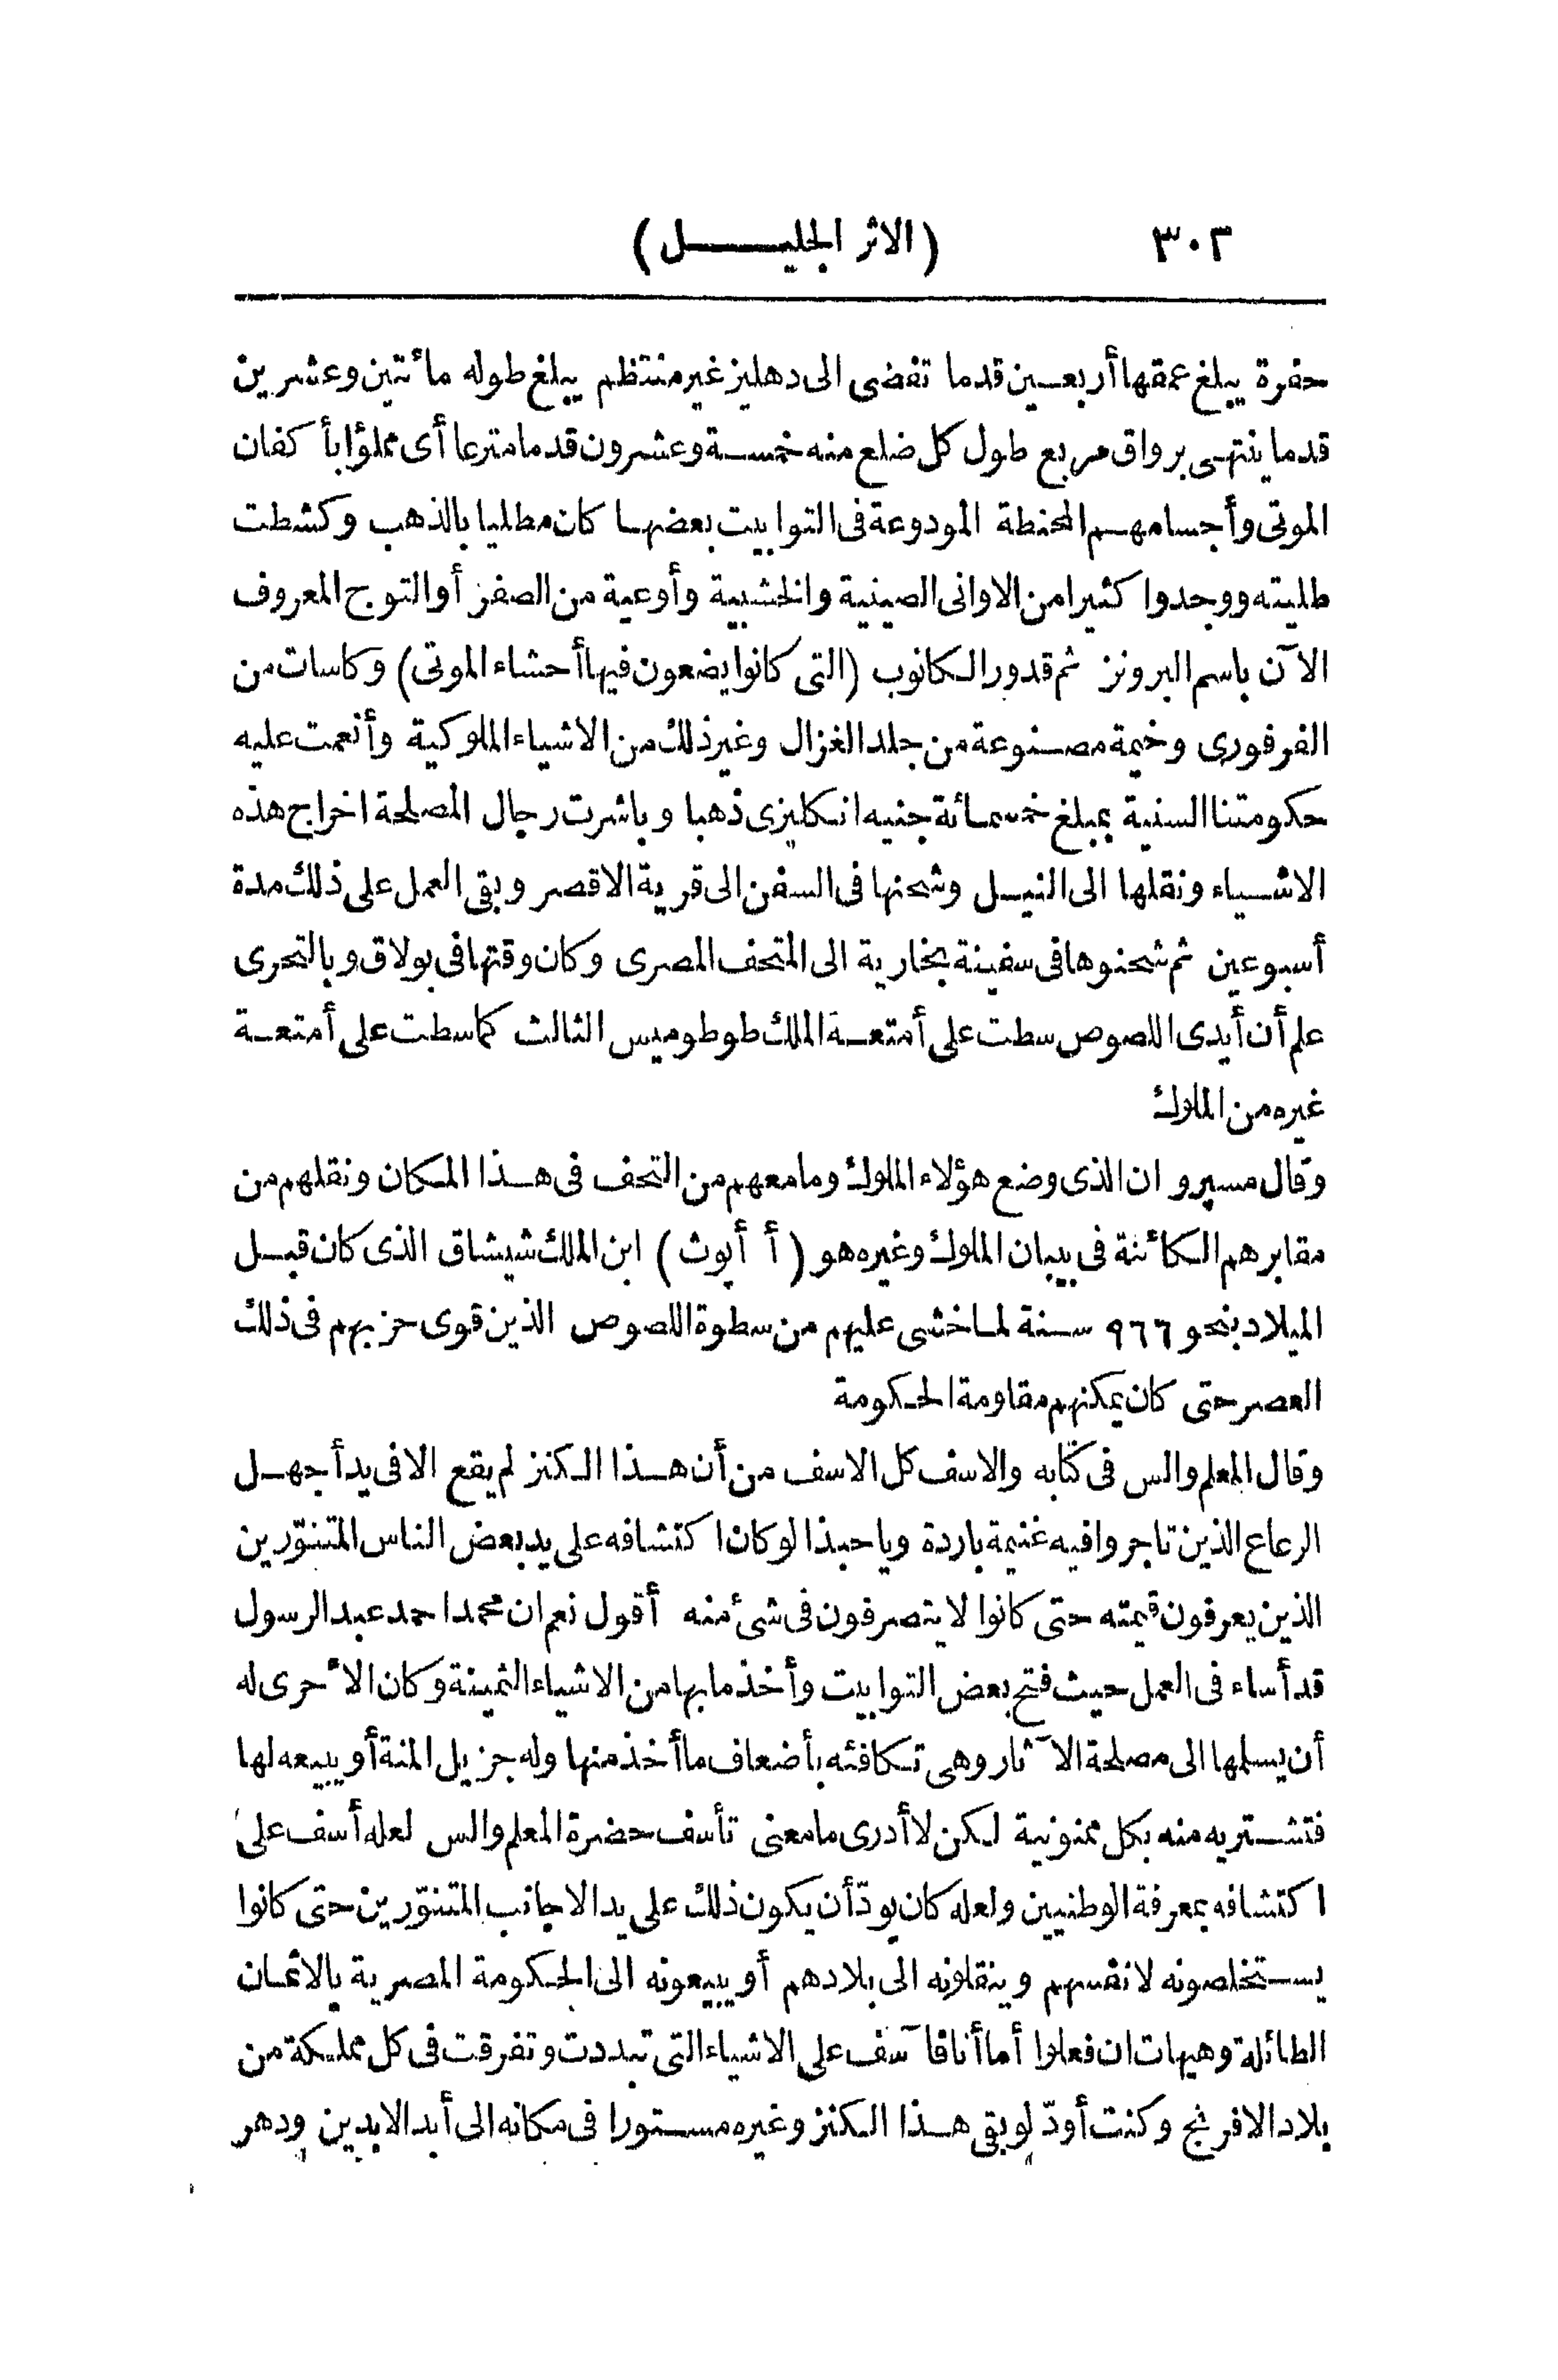 ٣٠٢ (الاثر الجليـــــل)
حفرة يبلغ عمقها أربعـين قدما تفضى الى دهليز غير منتظم يبلغ طوله مائتين وعشرين
قدما ينتهى برواق مربع طول كل ضلع منه خمسـة وعشرون قدما مترعا أى مملؤا بأكفان
الموتى وأجسامهـم المحنطة المودوعة فى التوابيت بعضهـا كان مطليا بالذهب وكشطت
طليته ووجدوا كثيرا من الاوانى الصينية والخشبية وأوعية من الصفر أو التوج المعروف
الآن باسم البرونز ثم قدور الـكانوب (التى كانوا يضعون فيها أحشاء الموتى) وكاسات من
الفرفورى وخيمة مصـنوعة من جلد الغزال وغير ذلك من الاشياء الملوكية وأنعمت عليه
حكومتنا السنية بمبلغ خمسمـائة جنيه انـكليزى ذهبا وباشرت رجال المصلحة اخراج هذه
الاشـياء ونقلها الى النيـل وشحنها فى السفن الى قرية الاقصر وبقى العمل على ذلك مدة
أسبوعين ثم شحنوها فى سفينة بخارية الى المتحف المصرى وكان وقتها فى بولاق وبالتحرى
علم أن أيدى اللصوص سطت على أمتعـة الملك طوطوميس الثالث كما سطت على أمتعـة
غيره من الملوك
وقال مسپرو ان الذى وضع هؤلاء الملوك وما معهم من التحف فى هـذا المـكان ونقلهم من
مقابرهم الـكائنة فى بيبان الملوك وغيره هو ( أ أپوث ) ابن الملك شيشاق الذى كان قبـل
الميلاد بنحو ٩٦٦ سـنة لمـا خشى عليهم من سطوة اللصوص الذين قوى حزبهم فى ذلك
العصر حتى كان يمكنهم مقاومة الحـكومة
وقال المعلم والس فى كتابه والاسف كل الاسف من أن هـذا الـكنز لم يقع الا فى يد أجهـل
الرعاع الذين تاجروا فيه غنيمة باردة ويا حبذا لو كان اكتشافه على يد بعض الناس المتنوّرين
الذين يعرفون قيمته حتى كانوا لا يتصرفون فى شئ منه أقول نعم ان محمدا حمد عبد الرسول
قد أساء فى العمل حيث فتح بعض التوابيت وأخذ ما بها من الاشياء الثمينة وكان الأحرى له
أن يسلمها الى مصلحة الآثار وهى تـكافئه بأضعاف ما أخذ منها وله جزيل المنة أو يبيعه لها
فتشـتريه منه بكل ممنونية لـكن لا أدرى ما معنى تأسف حضرة المعلم والس لعله أسف على
اكتشافه بمعرفة الوطنيين ولعله كان يودّ أن يكون ذلك على يد الاجانب المتنوّرين حتى كانوا
يسـتخلصونه لانفسهم وينقلونه الى بلادهم أو يبيعونه الى الحـكومة المصرية بالاثمـان
الطائلة وهيهات ان فعلوا أما أنا فآسف على الاشياء التى تبددت وتفرقت فى كل مملـيكة من
بلاد الافرنج وكنت أودّ لو بقى هـذا الـكنز وغيره مسـتورا فى مكانه الى أبد الابدين ودهر